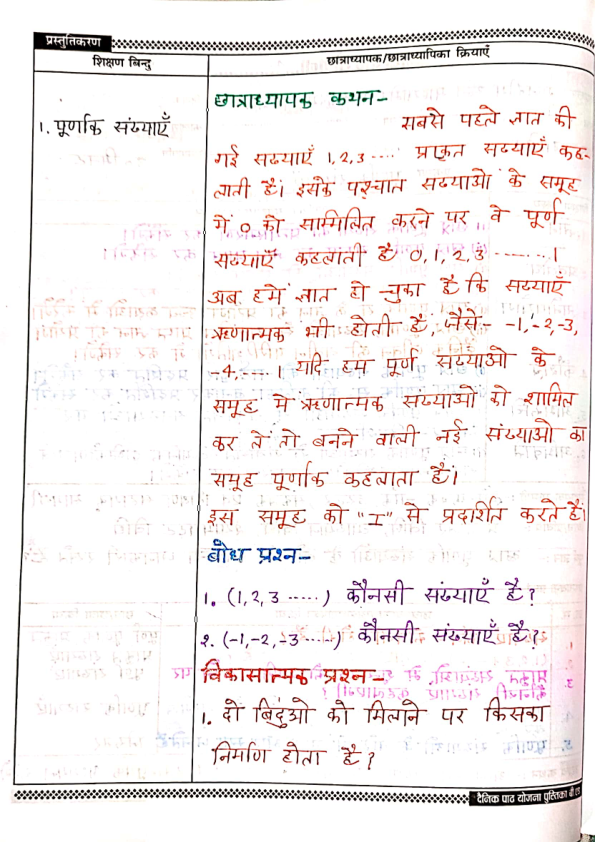 प्रस्तुतिकरण
शिक्षण बिन्दु
छात्राध्यापक/छात्राध्यापिका क्रियाएँ
१. पूर्णाक संख्याएँ
छात्राध्यापक कथन-
सबसे पहले ज्ञात की
गई सख्याएँ 1,2,3 .... प्राकृत सख्याएँ कह-
लाती है। इसके पश्चात सख्याओ के समूह
में 0 को सम्मिलित करने पर वे पूर्ण
सख्याएँ कहलाती है 0,1,2,3 ........।
अब हमे ज्ञात हो चुका है कि सख्याएँ
ऋणात्मक भी होती है, जैसे- -1,-2,-3,
-4,....। यदि हम पूर्ण सख्याओ के
समूह मे ऋणात्मक सख्याओ को शामिल
कर ले तो बनने वाली नई संख्याओ का
समूह पूर्णाक कहलाता है।
इस समूह को "I" से प्रदर्शित करते है।
बोध प्रश्न-
१. (1,2,3 .....) कौनसी संख्याएँ है?
२. (-1,-2,-3.....) कौनसी संख्याएँ है?
विकासात्मक प्रश्न-
१. दो बिंदुओ को मिलाने पर किसका
निर्माण होता है?
दैनिक पाठ योजना पुस्तिका बी